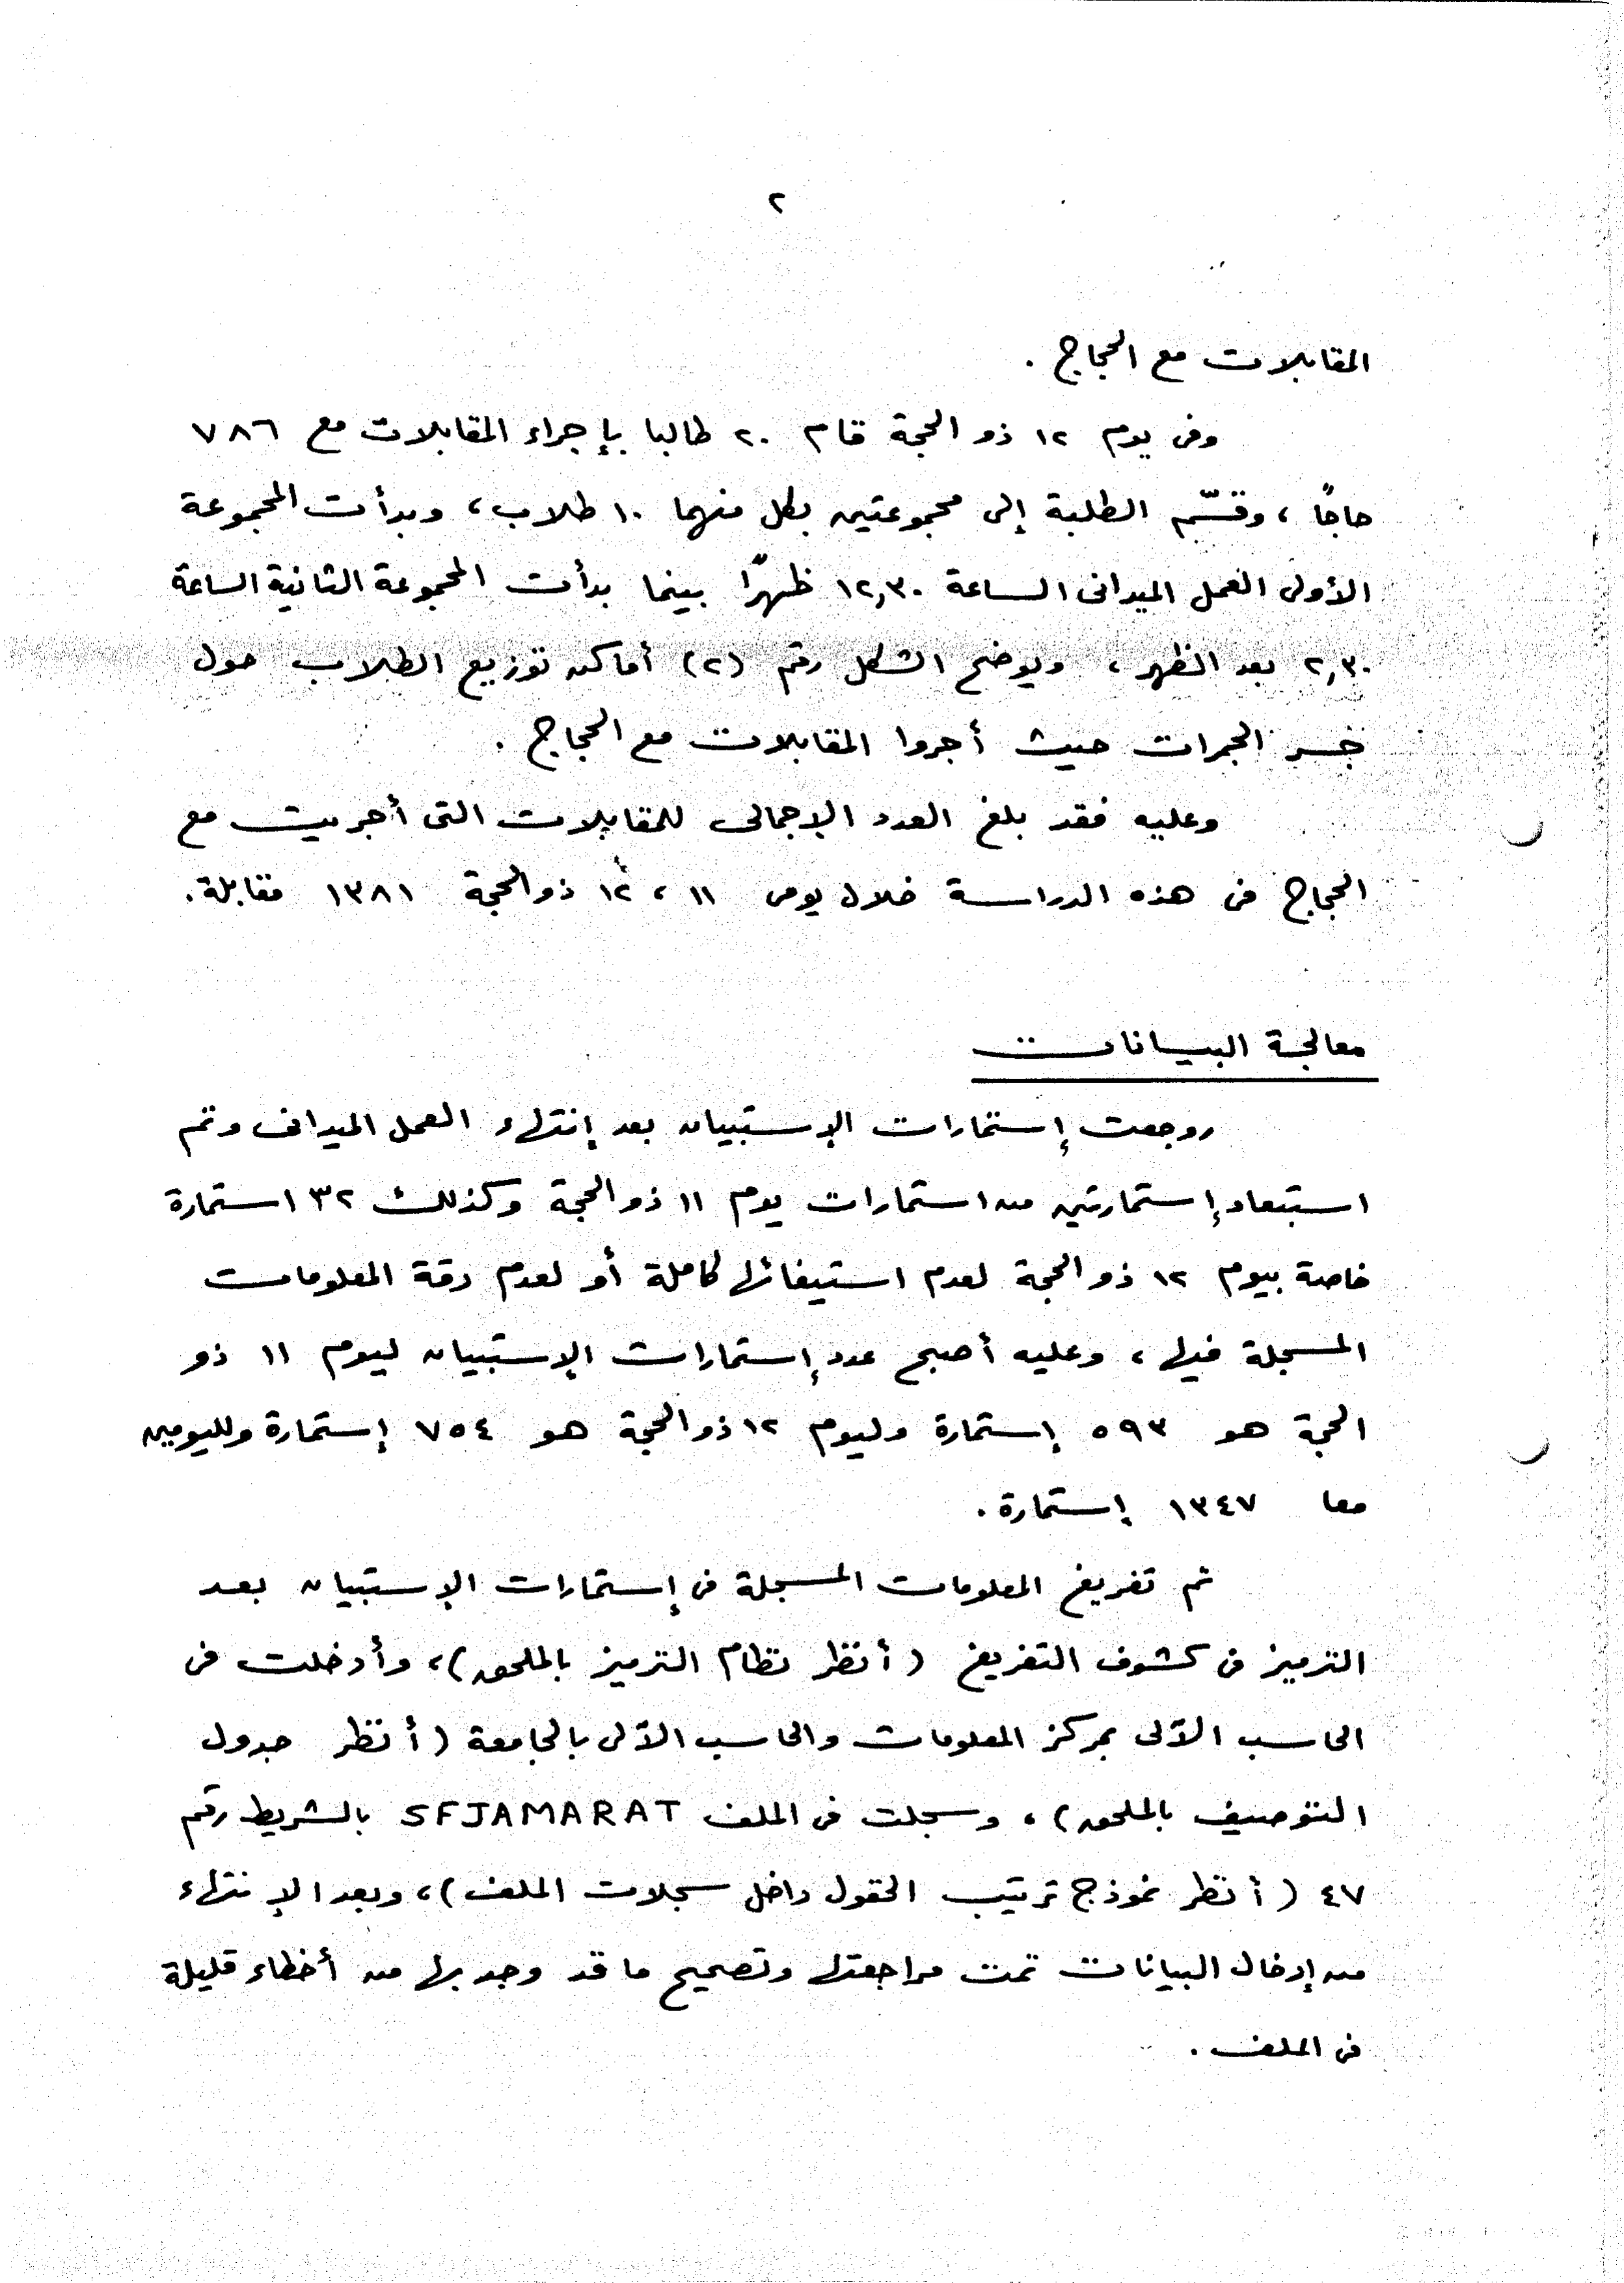 ٢
المقابلات مع الحجاج .
وفى يوم ١٢ ذو الحجة قام ٢٠ طالبا بإجراء المقابلات مع ٧٨٦
حاجًا ، وقسّم الطلبة إلى مجموعتين بكل منهما ١٠ طلاب ، وبدأت المجموعة
الأولى العمل الميدانى الساعة ١٢,٣٠ ظهرًا بينما بدأت المجموعة الثانية الساعة
٢,٣٠ بعد الظهر ، ويوضح الشكل رقم (٢) أماكن توزيع الطلاب حول
جسر الجمرات حيث أجروا المقابلات مع الحجاج .
وعليه فقد بلغ العدد الإجمالى للمقابلات التى أجريت مع
الحجاج فى هذه الدراسة خلال يومى ١١ ، ١٢ ذو الحجة ١٣٨١ مقابلة .
معالجة البيانات
روجعت إستمارات الإستبيان بعد إنتهاء العمل الميدانى وتم
استبعاد إستمارتين من استمارات يوم ١١ ذو الحجة وكذلك ٣٢ استمارة
خاصة بيوم ١٢ ذو الحجة لعدم استيفائها كاملة أو لعدم دقة المعلومات
المسجلة فيها ، وعليه أصبح عدد إستمارات الإستبيان ليوم ١١ ذو
الحجة هو ٥٩٣ إستمارة وليوم ١٢ ذو الحجة هو ٧٥٤ إستمارة ولليومين
معا ١٣٤٧ إستمارة .
تم تفريغ المعلومات المسجلة فى إستمارات الإستبيان بعد
الترميز فى كشوف التفريغ ( أنظر نظام الترميز بالملحق ) ، وأدخلت فى
الحاسب الآلى بمركز المعلومات والحاسب الآلى بالجامعة ( أنظر جدول
التوصيف بالملحق ) ، وسجلت فى الملف SFJAMARAT بالشريط رقم
٤٧ ( أنظر نموذج ترتيب الحقول داخل سجلات الملف ) ، وبعد الإنتهاء
من إدخال البيانات تمت مراجعتها وتصحيح ما قد وجد بها من أخطاء قليلة
فى الملف .